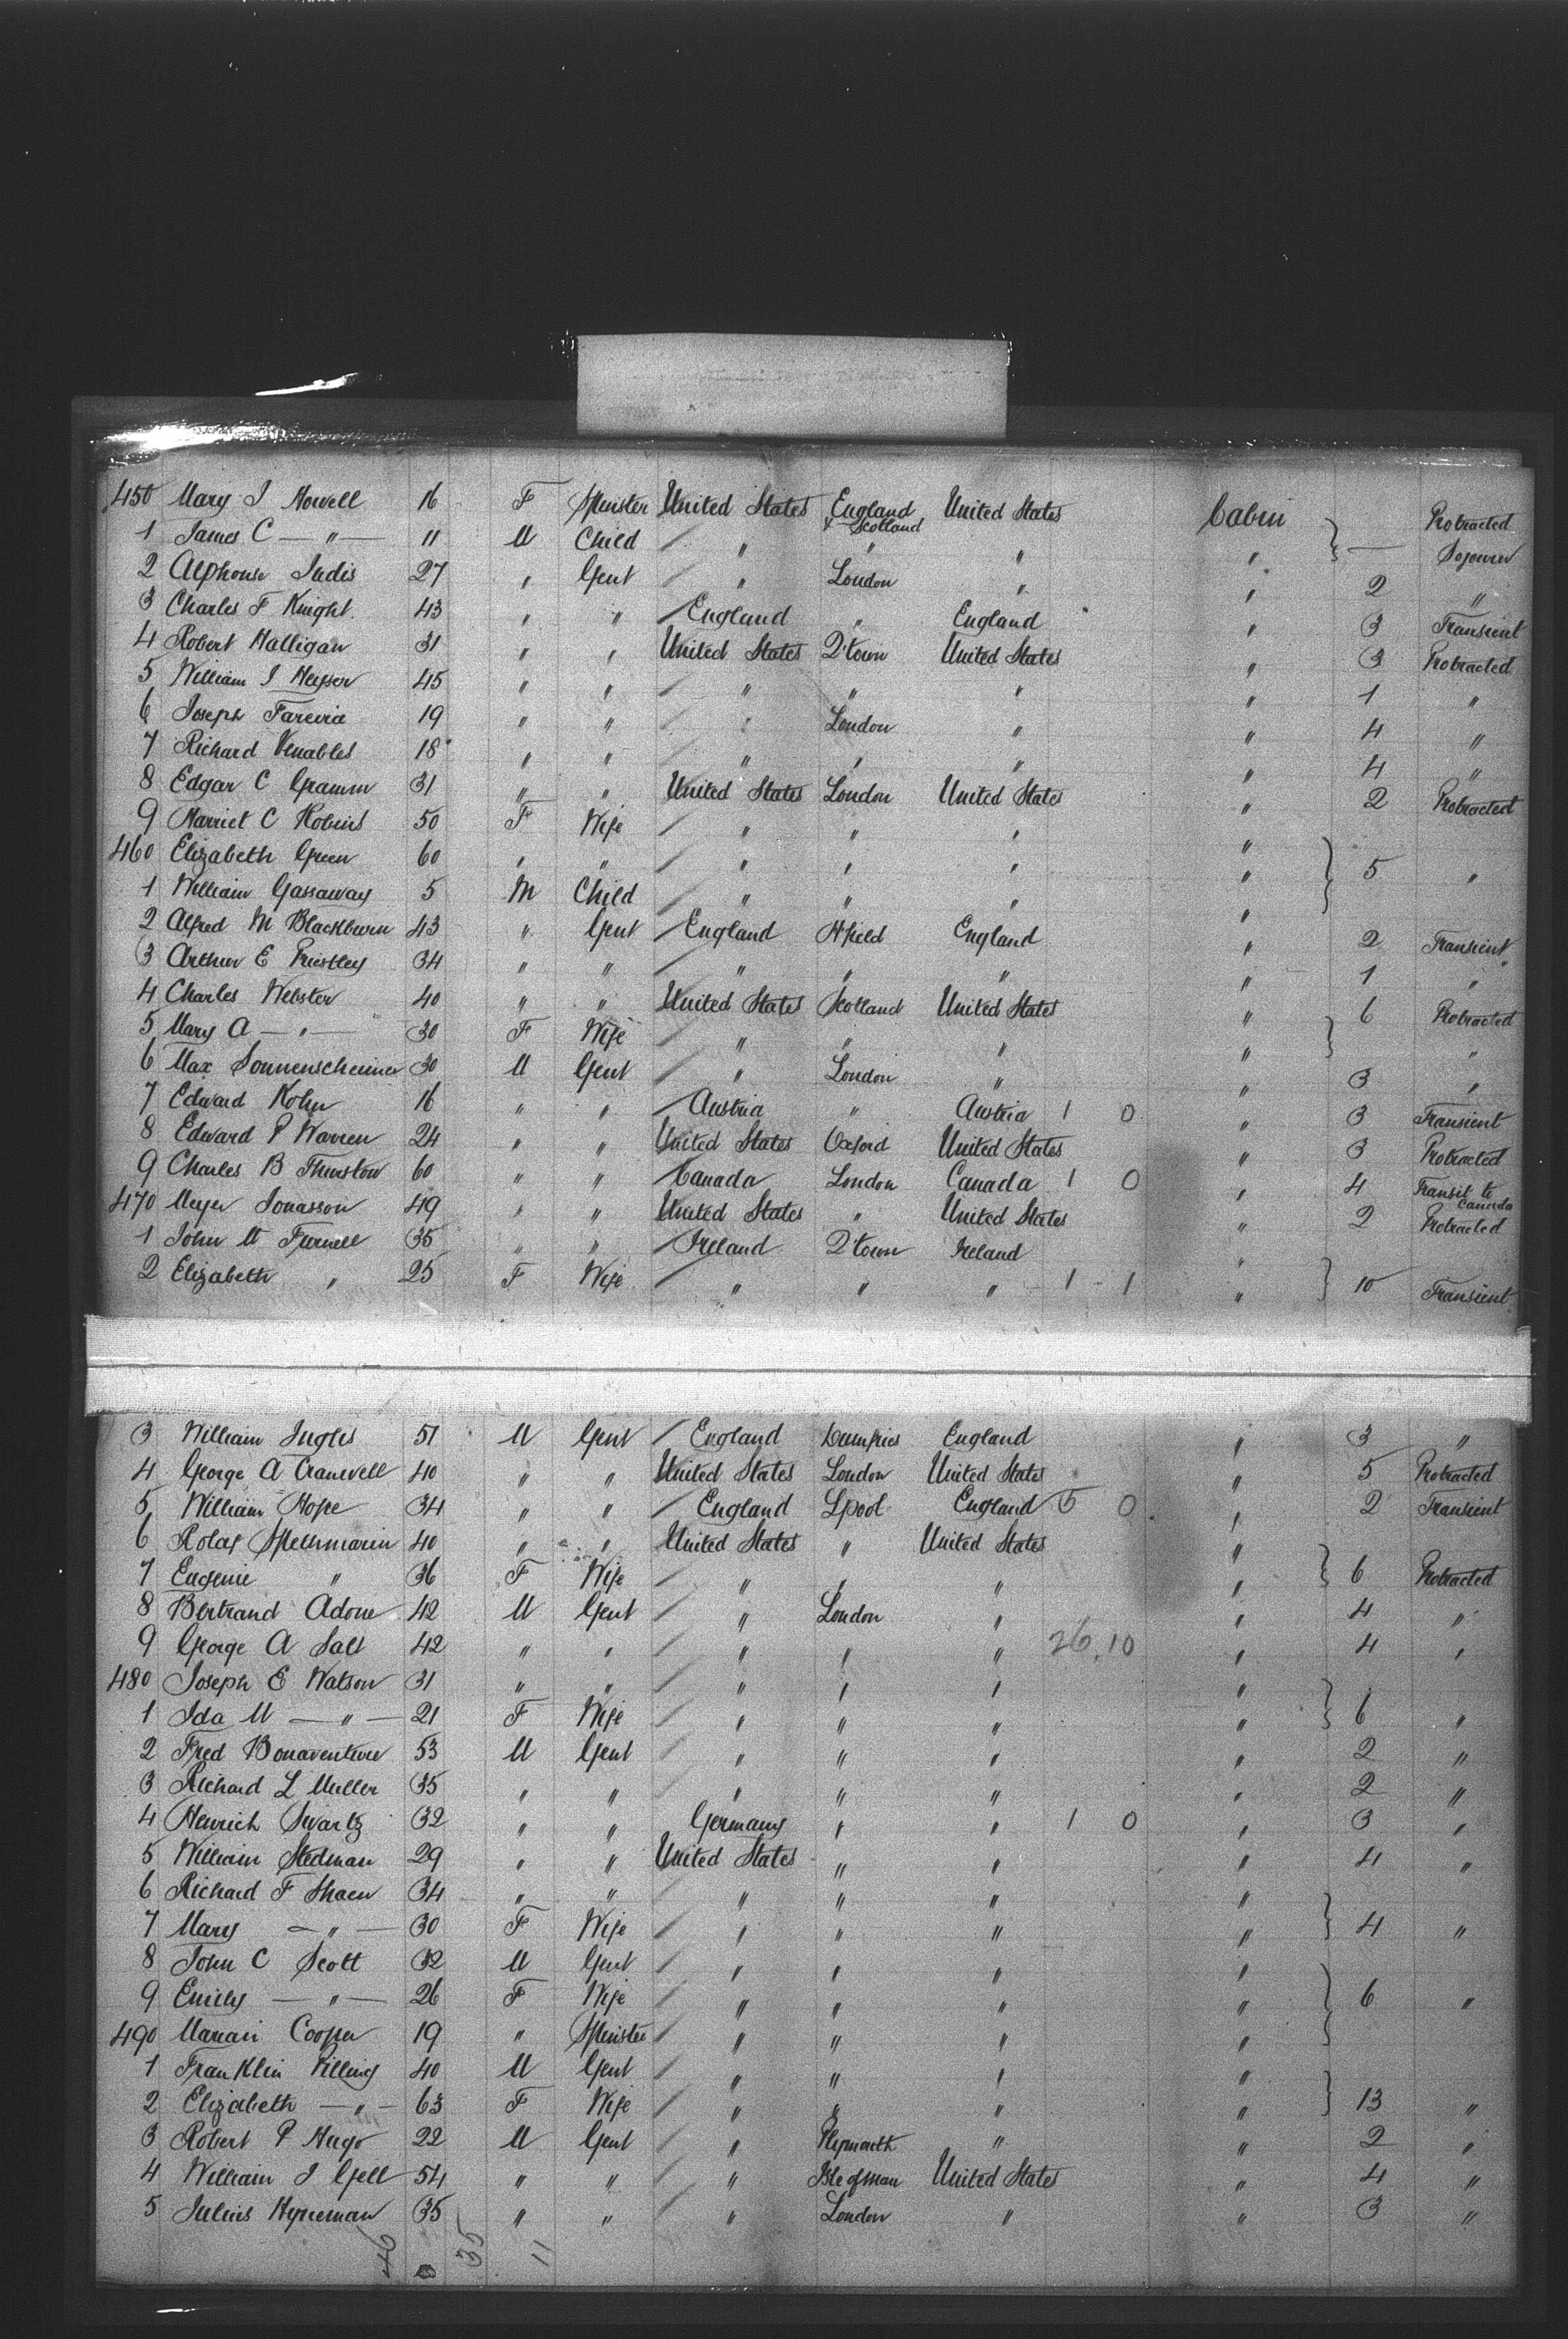 450 Mary J Howell 16 F Spinster United States England & Scotland United States Cabin Protracted
1 James C — " — 11 M Child " " " " — Sojourn
2 Alphonse Judis 27 " Gent " London " " 2 "
3 Charles F Knight 43 " " England " England " 3 Transient
4 Robert Halligan 31 " " United States Q'town United States " 3 Protracted
5 William J Heyser 45 " " " " " " 1 "
6 Joseph 19 " " " London " " 4 "
7 Richard Venables 18 " " " " " " 4 "
8 Edgar C Gramm 31 " " United States London United States " 2 Protracted
9 Harriet C Robins 50 F Wife " " " "
460 Elizabeth Green 60 " " " " " " 5 "
1 William Gassaway 5 M Child " " " "
2 Alfred M Blackburn 43 " Gent England H'field England " 2 Transient
3 Arthur E Priestley 34 " " " " " " 1 "
4 Charles Webster 40 " " United States Scotland United States " 6 Protracted
5 Mary A — " — 30 F Wife " " " " "
6 Max Sonnenscheimer 30 M Gent " London " " 3 "
7 Edward Kohn 16 " " Austria " Austria 1 0 " 3 Transient
8 Edward P Warren 24 " " United States Oxford United States " 3 Protracted
9 Charles B Thurstow 60 " " Canada London Canada 1 0 " 4 Transit to Canada
470 Meyer Jonasson 49 " " United States " United States " 2 Protracted
1 John W Furnell 35 " " Ireland Q'town Ireland "
2 Elizabeth " 25 F Wife " " " 1 - 1 " 10 Transient
3 William Inglis 51 M Gent England Dumfries England " 3 "
4 George A Cranwell 40 " " United States London United States " 5 Protracted
5 William Hope 34 " " England Lpool England 5 0 " 2 Transient
6 40 " " United States " United States "
7 Eugenie " 36 F Wife " " " " 6 Protracted
8 Bertrand Adoue 42 M Gent " London " " 4 "
9 George A Salt 42 " " " " " 26.10 " 4 "
480 Joseph E Watson 31 " " " " " "
1 Ida M — " — 21 F Wife " " " " 6 "
2 Fred Bonaventure 53 M Gent " " " " 2 "
3 Richard L Muller 35 " " " " " " 2 "
4 Henrich Swartz 32 " " Germany " " 1 0 " 3 "
5 William Stedman 29 " " United States " " " 4 "
6 Richard F Shaen 34 " " " " " "
7 Mary — " — 30 F Wife " " " " 4 "
8 John C Scott 32 M Gent " " " "
9 Emily — " — 26 F Wife " " " " 6 "
490 Marian Cooper 19 " Spinster " " " "
1 Franklin Pilling 40 M Gent " " " "
2 Elizabeth — " — 63 F Wife " " " " 13 "
3 Robert P Hugo 22 M Gent " Plymouth " " 2 "
4 William J Gell 54 " " " Isle of Man United States " 4 "
5 Julius Hyneman 35 " " " London " " 3 "
46 35 11